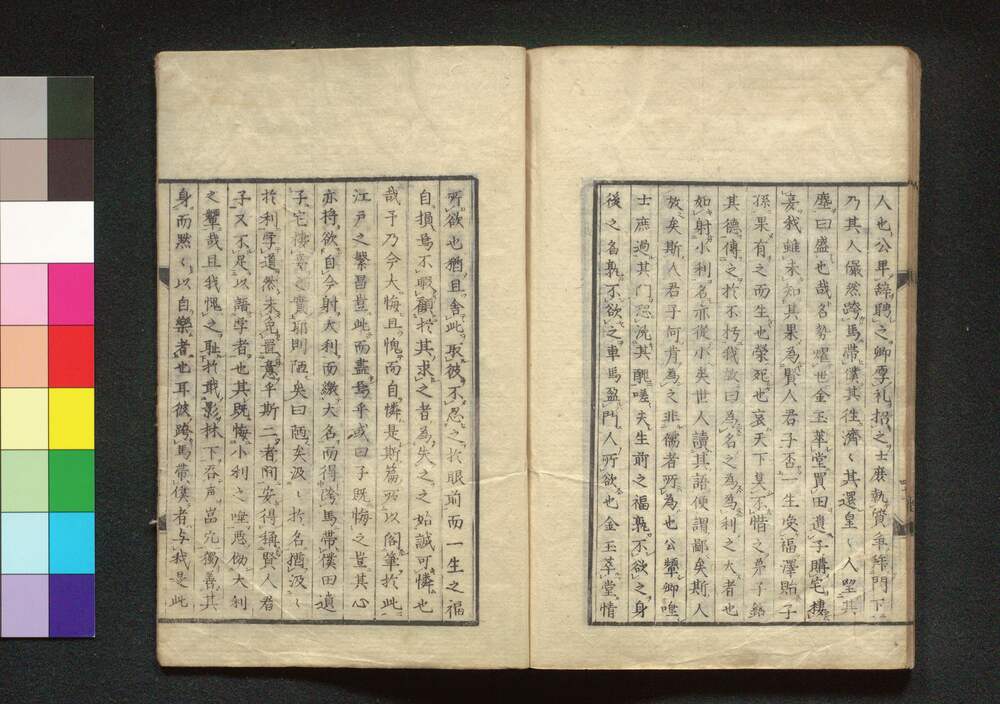 人也公卑辭聘之卿厚礼招之士庶執贄乗絳門下
乃其人儼然跨馬帶僕其徃濟〻其還皇〻人望其
塵曰盛也哉名勢耀世金玉萃堂買田遺子購宅棲
妾我雖未知其果為賢人君子否一生喫福澤貽子
孫果有之而生也榮死也哀天下莫不惜之夢子録
其德傳之於不朽我故曰為名之為為利之大者也
如射小利名亦従小矣世人讀其語便謂鄙矣斯人
故矣斯人君子何肯為之非儒者所為也公輦卿
士庶過其门恐洗其 嗟夫生前之福孰不欲之身
後之名孰不欲之車馬盈門人所欲也金玉萃堂情
所欲也猶且舎此取彼不忍之於眼前而一生之福
自損焉不暇顧於其求之者為失之之始誠可憐也
哉予乃今大悔且愧而自憐是斯篇所以閣筆於此
江戸之繁昌豈此而盡焉乎或曰子既悔之豈其心
亦将欲自今射大利而繳大名而得跨馬帶僕田遺
子宅棲妾之實耶則陋矣曰陋矣汲〻於名猶汲〻
於利学道然未免置意乎斯二者间安得稱賢人君
子又不足以語学者也其既悔小利之唾悪傚大利
之顰哉且我愧之耻於我影林下吞声嵓穴獨善其
身而黙〻以自樂者也耳彼跨馬帶僕者与我是此